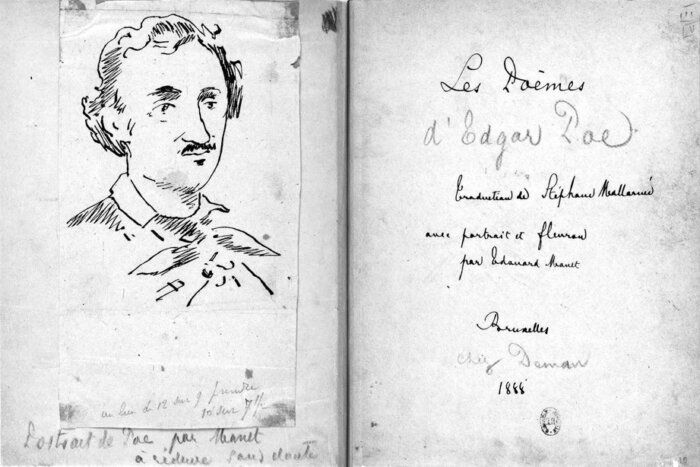 au lieu de 12 sur 9 prendre
10 sur 7½
Portrait de Poe par Manet
à réduire sans doute
Les Poèmes
d'Edgar Poe
Traduction de Stéphane Mallarmé
avec portrait et fleuron
par Edouard Manet
Bruxelles
chez Deman
1888